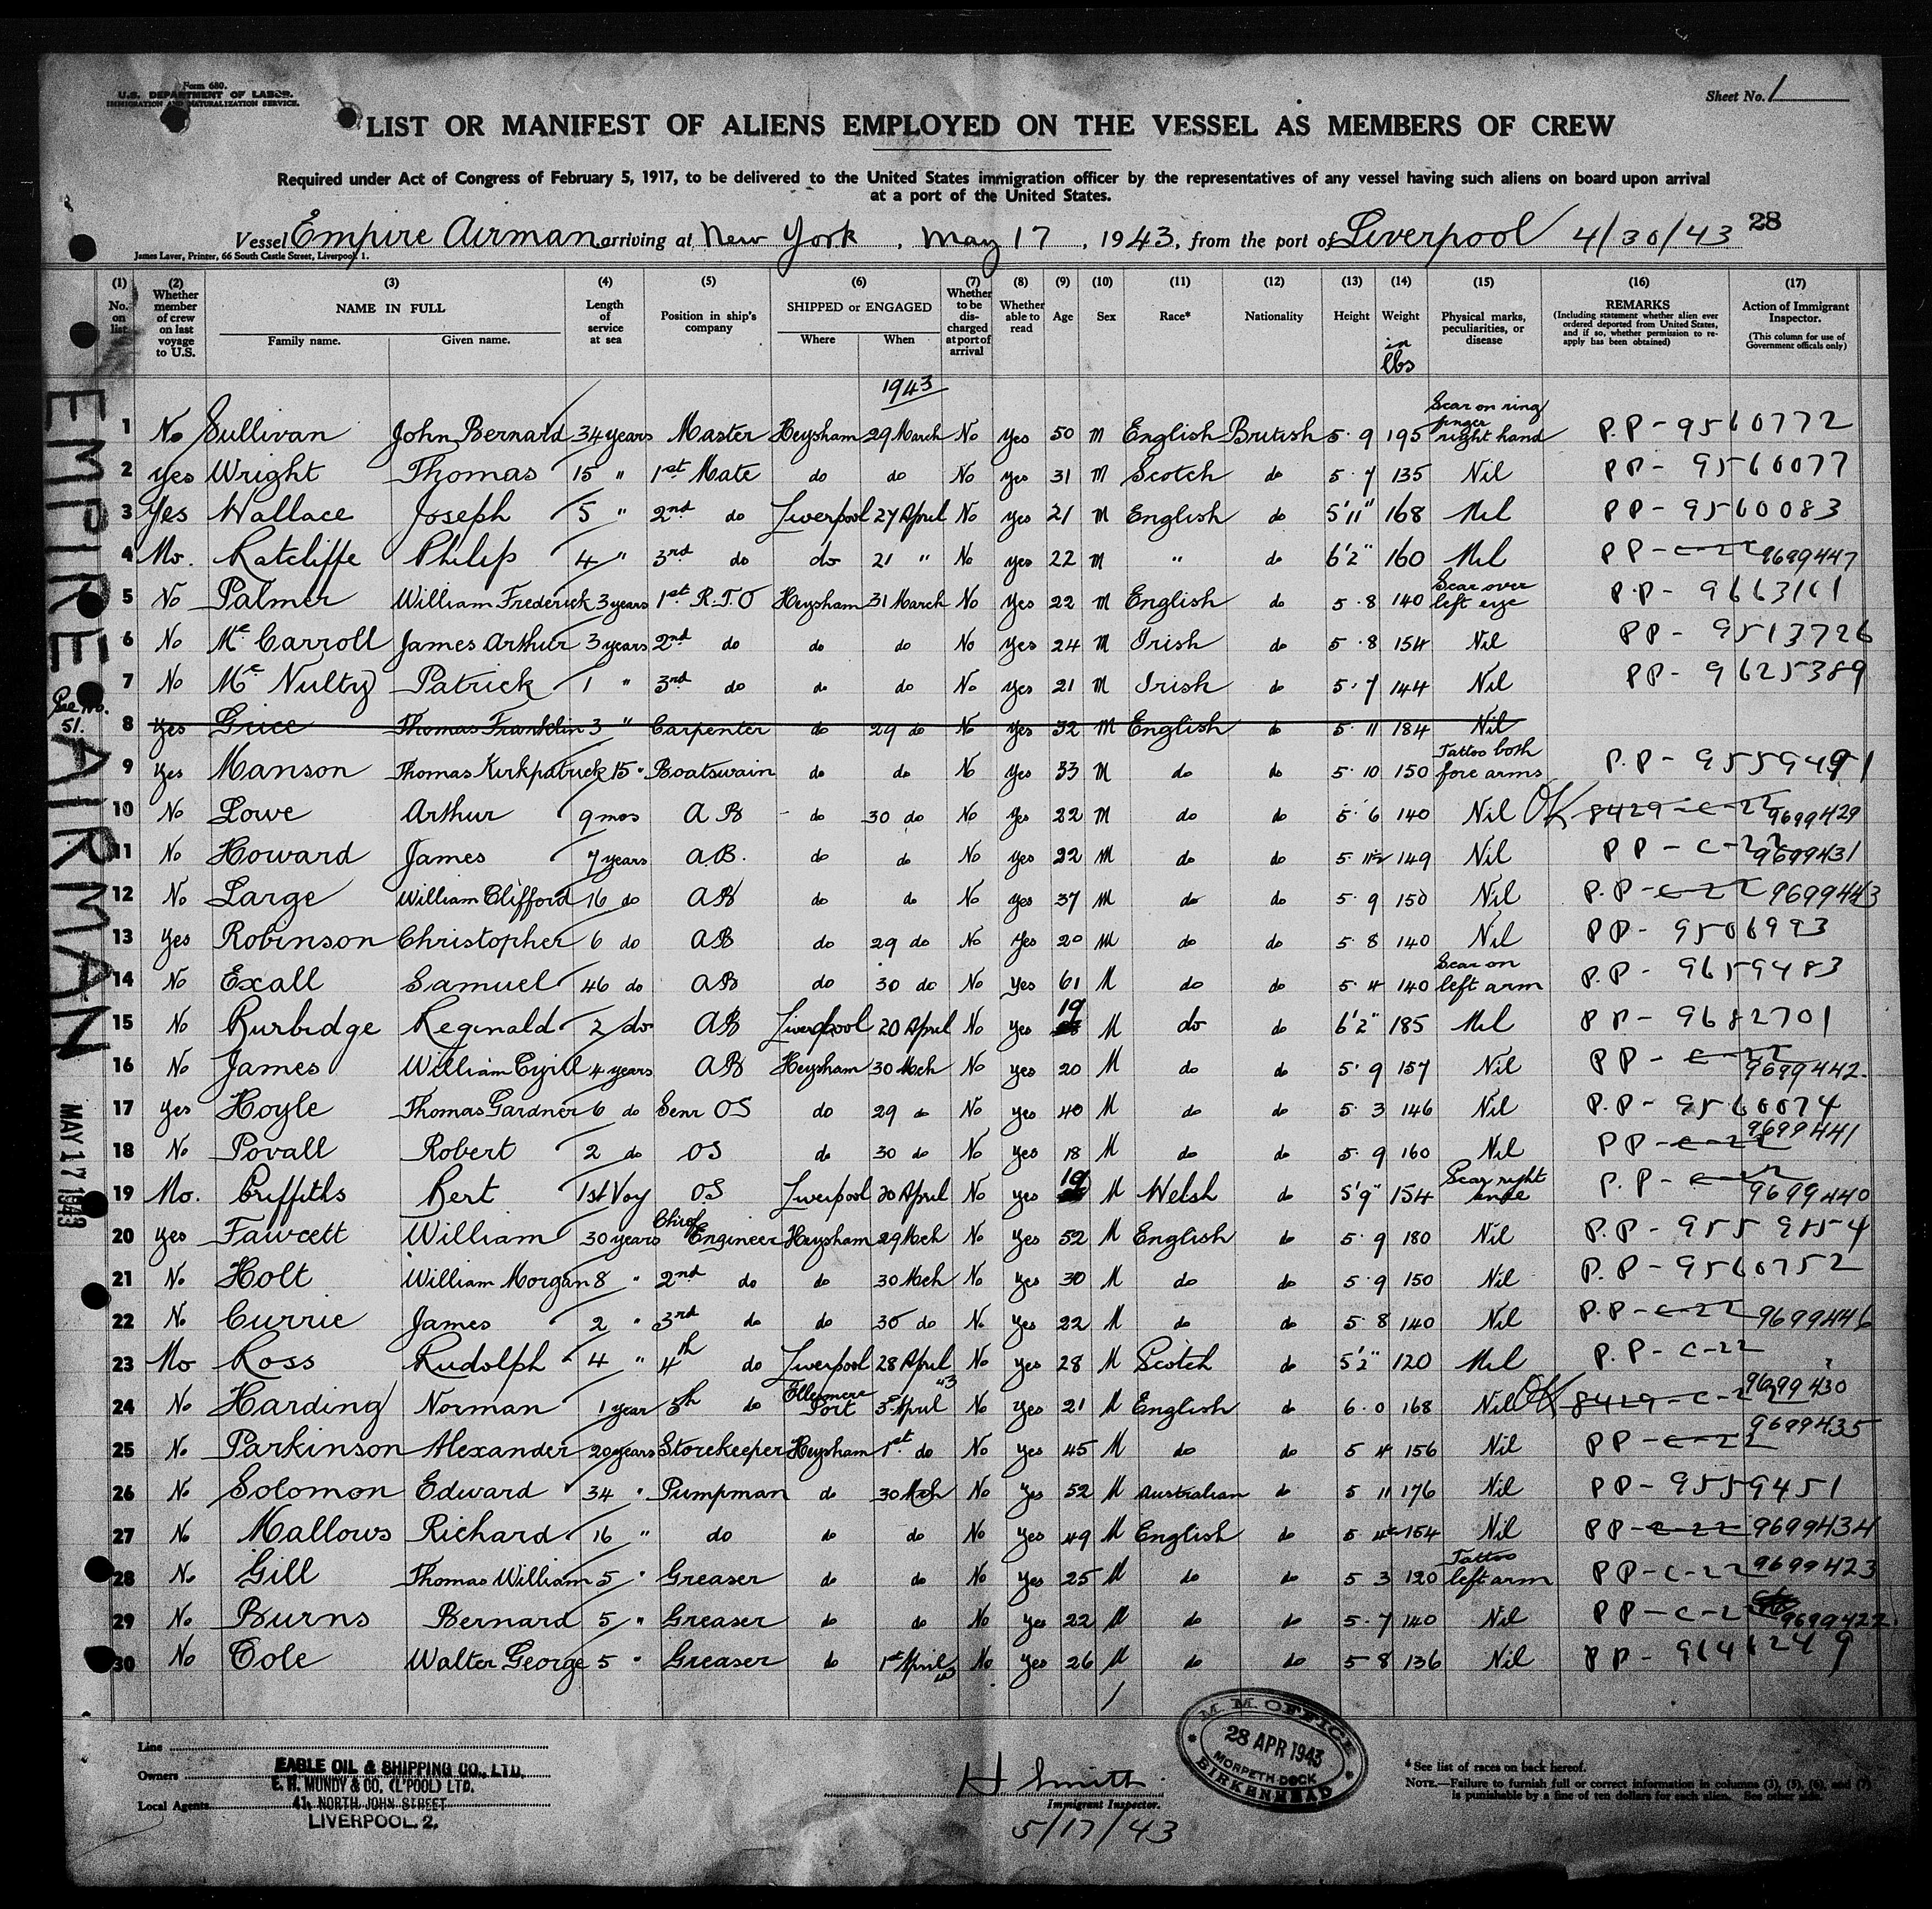 Form 680.
U.S. DEPARTMENT OF LABOR.
IMMIGRATION AND NATURALIZATION SERVICE.
Sheet No. 1
LIST OR MANIFEST OF ALIENS EMPLOYED ON THE VESSEL AS MEMBERS OF CREW
Required under Act of Congress of February 5, 1917, to be delivered to the United States immigration officer by the representatives of any vessel having such aliens on board upon arrival
at a port of the United States.
28
Vessel Empire Airman arriving at New York, May 17, 1943, from the port of Liverpool 4/30/43
James Laver, Printer, 66 South Castle Street, Liverpool 1.
(1) No. on list (2) Whether member of crew on last voyage to U.S. (3) NAME IN FULL Family name. Given name. (4) Length of service at sea (5) Position in ship's company (6) SHIPPED or ENGAGED Where When (7) Whether to be discharged at port of arrival (8) Whether able to read (9) Age (10) Sex (11) Race* (12) Nationality (13) Height (14) Weight in lbs (15) Physical marks, peculiarities, or disease (16) REMARKS (Including statement whether alien ever ordered deported from United States, and if so, whether permission to re-apply has been obtained) (17) Action of Immigrant Inspector. (This column for use of Government officals only)
1943
1 No Sullivan John Bernard 34 years Master Heysham 29 March No Yes 50 M English British 5.9 195 Scar on ring finger right hand P.P - 9560772
2 Yes Wright Thomas 15 " 1st Mate do do No Yes 31 M Scotch do 5.7 135 Nil PP - 9560077
3 Yes Wallace Joseph 5 " 2nd do Liverpool 27 April No Yes 21 M English do 5'11" 168 Nil PP - 9560083
4 No. Ratcliffe Philip 4 " 3rd do do 21 " No Yes 22 M " do 6'2" 160 Nil PP - C-22 9699447
5 No Palmer William Frederick 3 years 1st R.T.O Heysham 31 March No Yes 22 M English do 5.8 140 Scar over left eye P.P - 9663161
6 No Mc Carroll James Arthur 3 years 2nd do do do No Yes 24 M Irish do 5.8 154 Nil PP - 9513726
7 No Mc Nulty Patrick 1 " 3rd do do do No Yes 21 M Irish do 5.7 144 Nil PP - 9625389
See No. 51.
8 Yes Grice Thomas Franklin 3 " Carpenter do 29 do No Yes 32 M English do 5.11 184 Nil
9 Yes Manson Thomas Kirkpatrick 15 " Boatswain do do No Yes 33 M do do 5.10 150 Tattoo both fore arms P.P - 9559491
10 No Lowe Arthur 9 mos AB do 30 do No Yes 22 M do do 5.6 140 Nil OK 8429 - C-22 9699429
11 No Howard James 7 years AB. do do No Yes 22 M do do 5.11½ 149 Nil PP - C-22 9699431
12 No Large William Clifford 16 do AB do do No Yes 37 M do do 5.9 150 Nil P.P - C-22 9699443
13 Yes Robinson Christopher 6 do AB do 29 do No Yes 20 M do do 5.8 140 Nil PP - 9506993
14 No Exall Samuel 46 do AB do 30 do No Yes 61 M do do 5.4 140 Scar on left arm P.P - 9659483
15 No Burbidge Reginald 2 do AB Liverpool 20 April No Yes 19 M do do 6'2" 185 Nil PP - 9682701
16 No James William Cyril 4 years AB Heysham 30 Mch No Yes 20 M do do 5.9 157 Nil PP - C-22 9699442.
17 Yes Hoyle Thomas Gardner 6 do Senr OS do 29 do No Yes 40 M do do 5.3 146 Nil P.P - 9560074
18 No Povall Robert 2 do OS do 30 do No Yes 18 M do do 5.9 160 Nil PP - C-22 9699441
19 No. Griffiths Bert 1st Voy O.S Liverpool 20 April No Yes 19 M Welsh do 5'9" 154 Scar right P.P - C-22 9699440
20 Yes Fawcett William 30 years Chief Engineer Heysham 29 Mch No Yes 52 M English do 5.9 180 Nil P.P - 9559854
21 No Holt William Morgan 8 " 2nd do do 30 Mch No Yes 30 M do do 5.9 150 Nil P.P - 9560752
22 No Currie James 2 " 3rd do do 30 do No Yes 22 M do do 5.8 140 Nil P.P - C-22 9699446
23 No Ross Rudolph 4 " 4th do Liverpool 28 April No Yes 28 M Scotch do 5'2" 120 Nil P.P - C-22
24 No Harding Norman 1 year 5th do Ellesmere Port 5 April 43 No Yes 21 M English do 6.0 168 Nil OK 8429 - C-22 9699430
25 No Parkinson Alexander 20 years Storekeeper Heysham 1st do No Yes 45 M do do 5 4 156 Nil PP - C-22 9699435
26 No Solomon Edward 34 " Pumpman do 30 Mch No Yes 52 M Australian do 5 11 176 Nil PP - 9559451
27 No Mallows Richard 16 " do do do No Yes 49 M English do 5 4½ 154 Nil PP - C-22 9699434
28 No Gill Thomas William 5 " Greaser do do No Yes 25 M do do 5 3 120 Tattoo left arm PP - C-22 9699423
29 No Burns Bernard 5 " Greaser do do No Yes 22 M do do 5.7 140 Nil PP - C-22 9699422.
30 No Cole Walter George 5 " Greaser do 1st April No Yes 26 M do do 5 8 136 Nil PP - 9646249
EMPIRE AIRMAN
MAY 17 1943
Line
Owners EAGLE OIL & SHIPPING CO., LTD.
E. H. MUNDY & CO. (L'POOL) LTD.
Local Agents 41, NORTH JOHN STREET
LIVERPOOL. 2.
H Smith
Immigrant Inspector.
5/17/43
M. M. OFFICE
28 APR 1943
MORPETH DOCK
BIRKENHEAD
* See list of races on back hereof.
NOTE.—Failure to furnish full or correct information in columns (3), (5), (6), and (7)
is punishable by a fine of ten dollars for each alien. See other side.